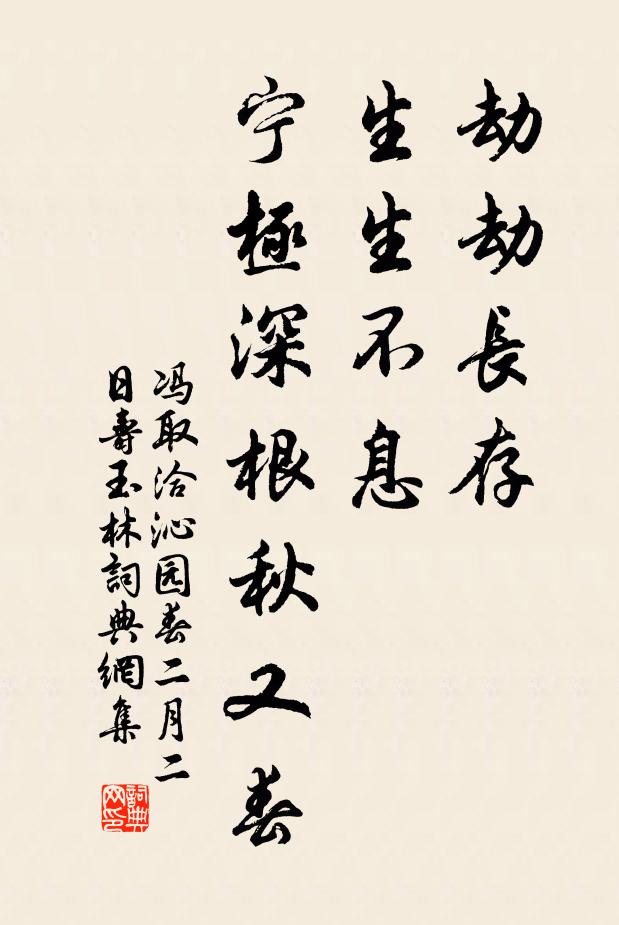 劫劫長存
生生不息
宁極深根秋又春
冯取洽沁园春二月二
日壽玉林詞典網集
詞典
网印